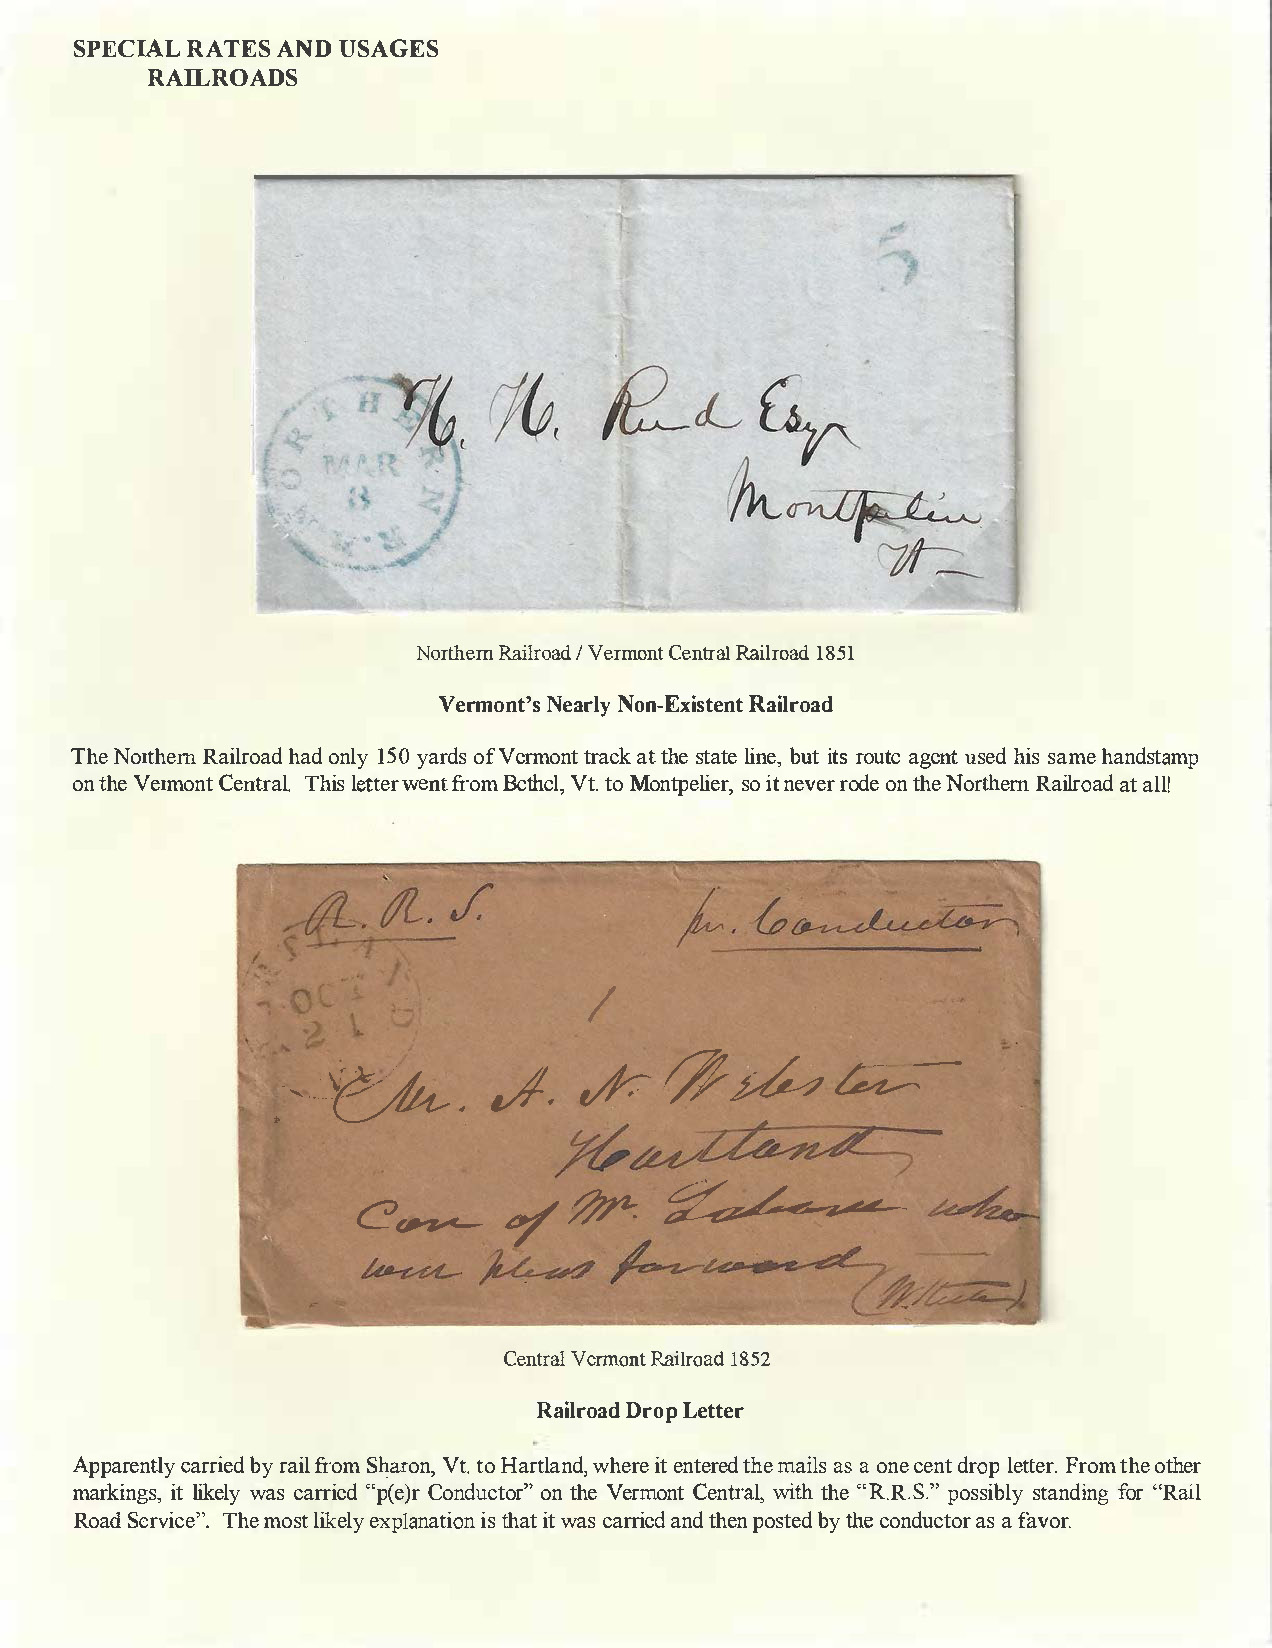 SPECIAL RATES AND USAGES
RAILROADS
5
NORTHERN R.R.
MAR
8
H. H. Reed Esqr
Montpelier
Vt
Northern Railroad / Vermont Central Railroad 1851
Vermont's Nearly Non-Existent Railroad
The Northern Railroad had only 150 yards of Vermont track at the state line, but its route agent used his same handstamp
on the Vermont Central. This letter went from Bethel, Vt. to Montpelier, so it never rode on the Northern Railroad at all!
R. R. S.
pr. Conductor
1
Mr. A. N. Webster
Hartland
Care of Mr.
who
will pleas forward
Central Vermont Railroad 1852
Railroad Drop Letter
Apparently carried by rail from Sharon, Vt. to Hartland, where it entered the mails as a one cent drop letter. From the other
markings, it likely was carried "p(e)r Conductor" on the Vermont Central, with the "R.R.S." possibly standing for "Rail
Road Service". The most likely explanation is that it was carried and then posted by the conductor as a favor.